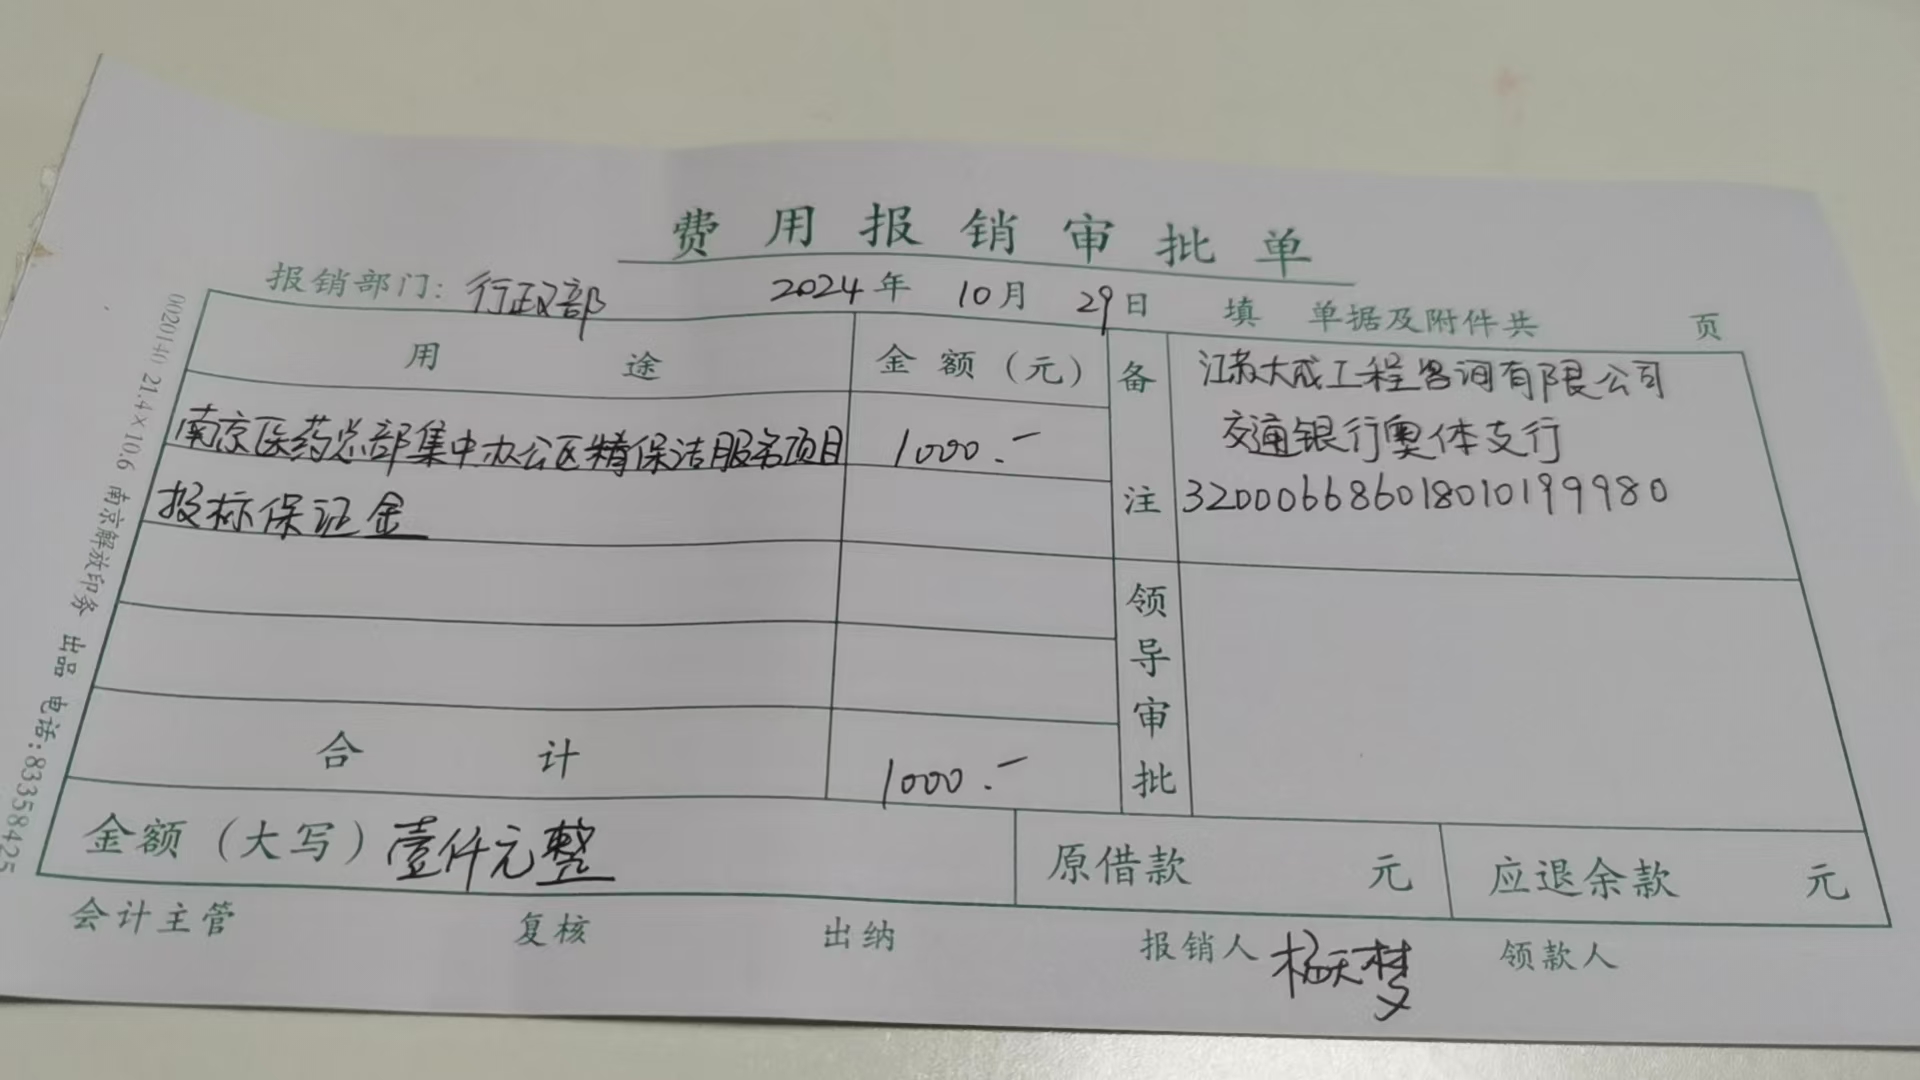 费用报销审批单
报销部门: 行政部 2024年 10月 29日 填 单据及附件共 页
用途 金额(元) 备注 江苏大成工程咨询有限公司
交通银行奥体支行
320006686018010199980
南京医药总部集中办公区精保洁服务项目 1000.-
投标保证金
领导审批
合计 1000.-
金额(大写) 壹仟元整 原借款 元 应退余款 元
会计主管 复核 出纳 报销人 杨天梦 领款人
0020140 21.4×10.6 南京解放印务 出品 电话:83358425